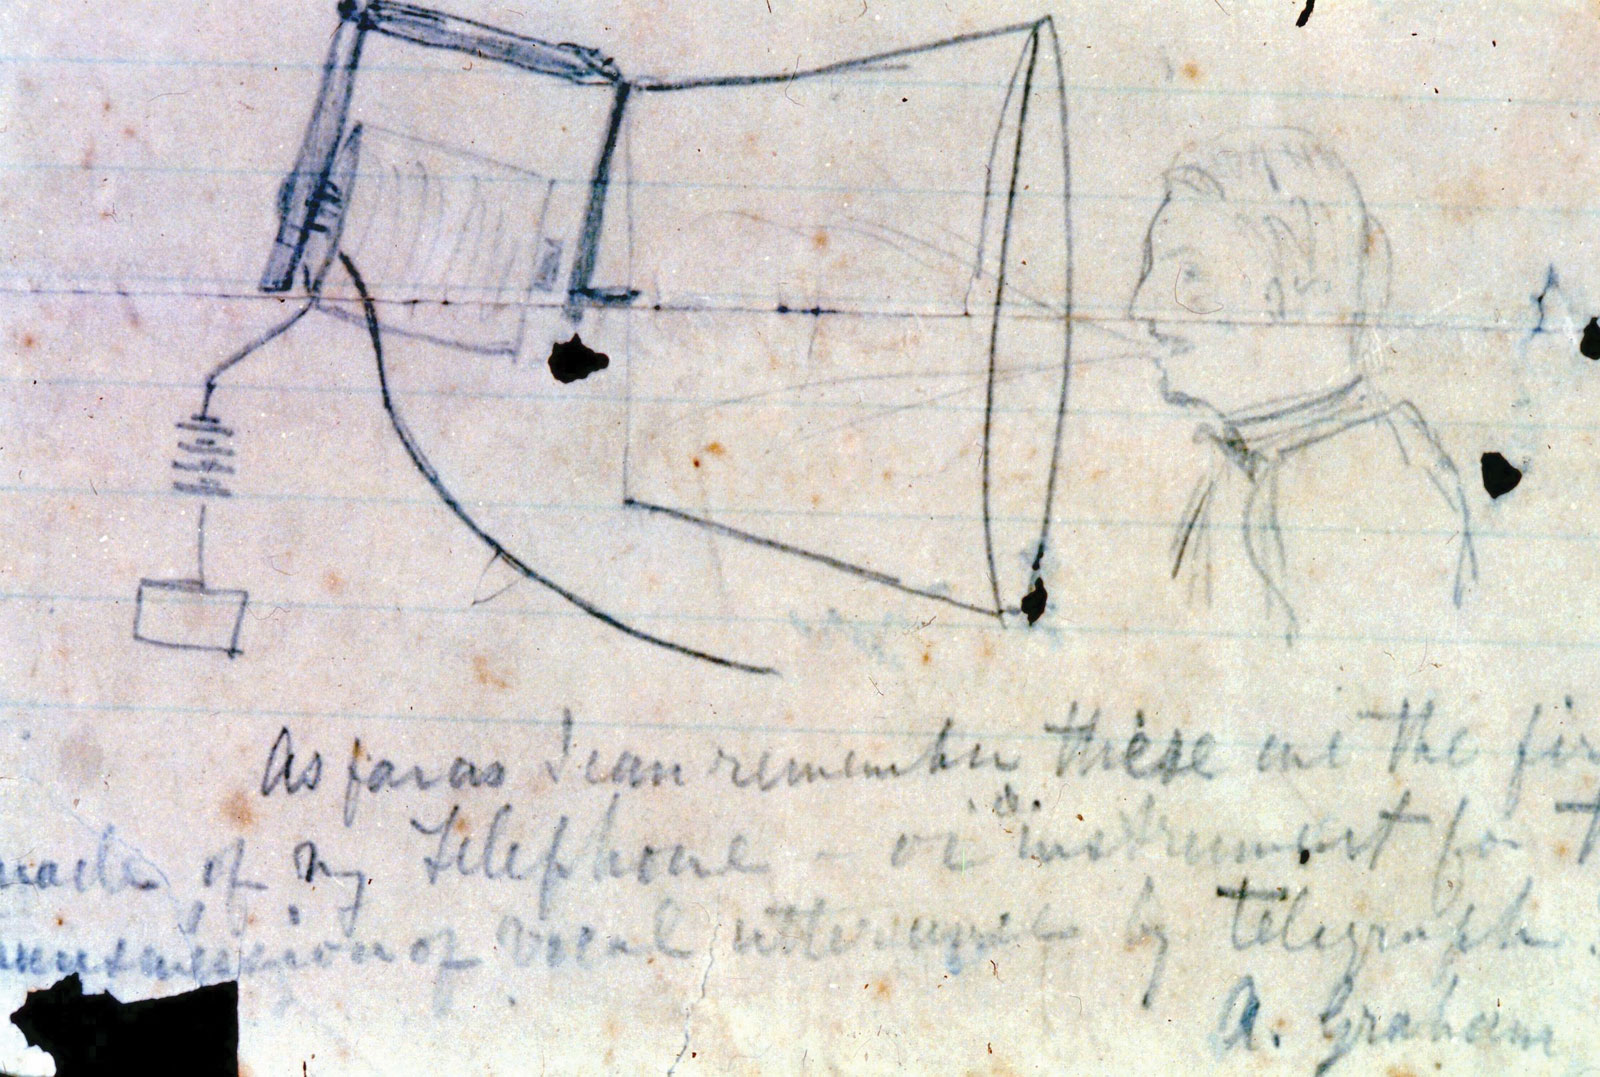 As far as I can remember these are the fir
made of my Telephone – or instrument for t
ransmission of vocal utterance by telegraph.
A. Graham